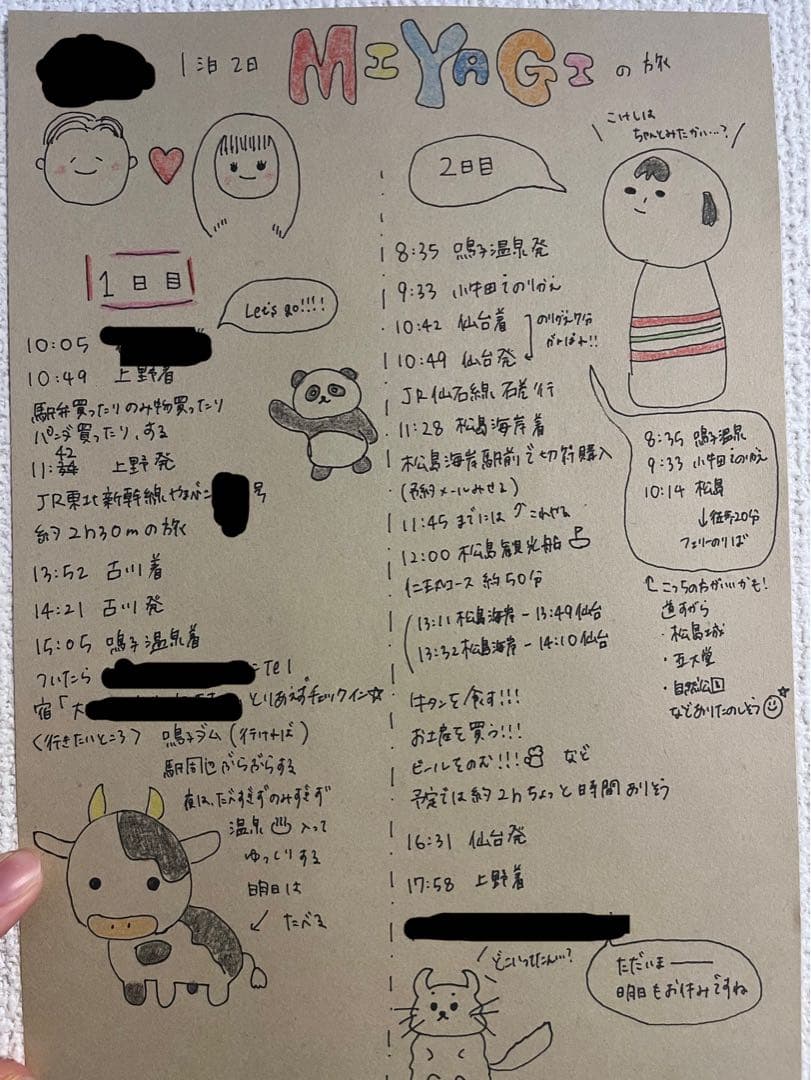 1泊2日 MIYAGIの旅
1日目
Let's go!!!!
10:05
10:49 上野着
駅弁買ったりのみ物買ったり
パンダ買ったり、する
11:42 上野発
JR東北新幹線やまびこ 号
約2h30mの旅
13:52 古川着
14:21 古川発
15:05 鳴子温泉着
ついたら にTel
宿「大 」とりあえずチェックイン☆
〈行きたいところ〉 鳴子ダム(行ければ)
駅周辺ぶらぶらする
夜は、たべすぎずのみすぎず
温泉♨入って
ゆっくりする
明日は
↙ たべる
2日目
8:35 鳴子温泉発
9:33 小牛田でのりかえ
10:42 仙台着
10:49 仙台発
のりかえ7分
がんばれ!!
JR仙石線 石巻行
11:28 松島海岸着
松島海岸駅前で切符購入
(予約メールみせる)
11:45 までには
12:00 松島観光船
仁王丸コース 約50分
13:11 松島海岸 - 13:49 仙台
13:32 松島海岸 - 14:10 仙台
牛タンを食す!!!
お土産を買う!!!
ビールをのむ!!! など
予定では約2hちょっと時間ありそう
16:31 仙台発
17:58 上野着
どこいってたん…?
ただいま——
明日もお休みですね
\ こけしは
ちゃんとみたかい…? /
8:35 鳴子温泉
9:33 小牛田でのりかえ
10:14 松島
↓徒歩20分
フェリーのりば
こっちの方がいいかも!
道すがら
・松島城
・五大堂
・自然公園
などありたのしそう☆